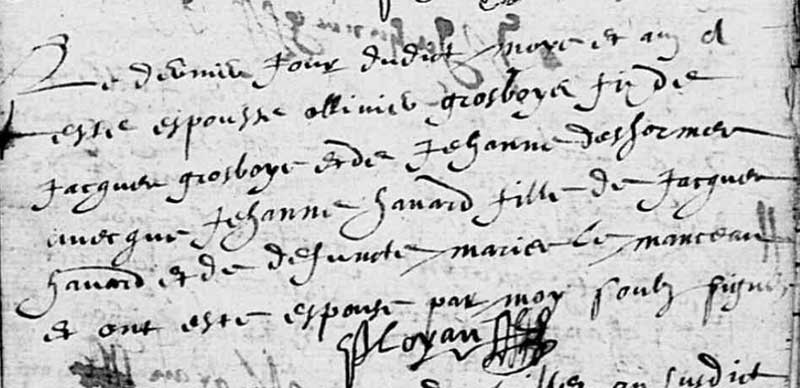 Le dernier jour dudict moys et an a
esté espousse ollivier grosboys filz de
Jacques grosboys et de Jehanne desformes
avecque Jehanne havard fille de Jacques
havard et de defuncte marie le manceau
et ont esté espousé par moy soubz signé
Ployan